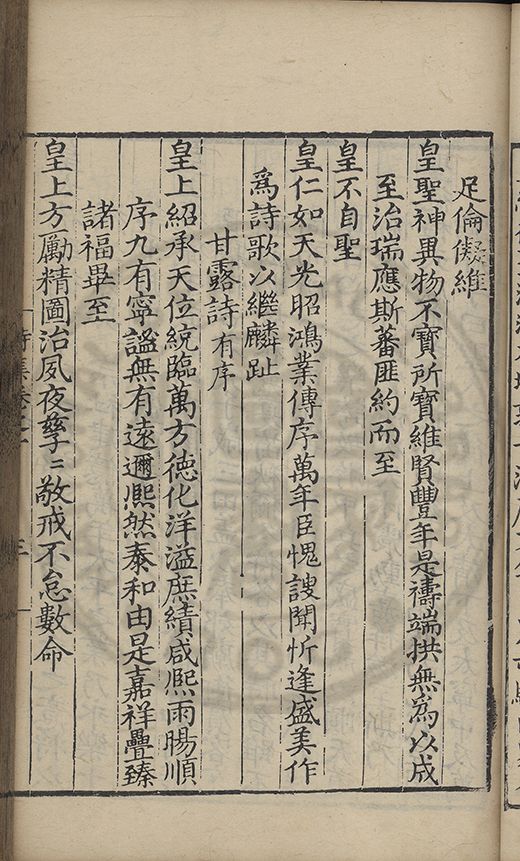 足倫儗維
皇聖神異物不寶所寶維賢豐年是禱端拱無爲以成
至治瑞應斯蕃匪約而至
皇不自聖
皇仁如天光昭鴻業傳序萬年臣愧謏聞忻逢盛美作
爲詩歌以繼麟趾
甘露詩有序
皇上紹承天位統臨萬方德化洋溢庶績咸熙雨暘順
序九有寧謐無有遠邇熙然泰和由是嘉祥疊臻
諸福畢至
皇上方勵精圖治夙夜孳〻敬戒不怠數命